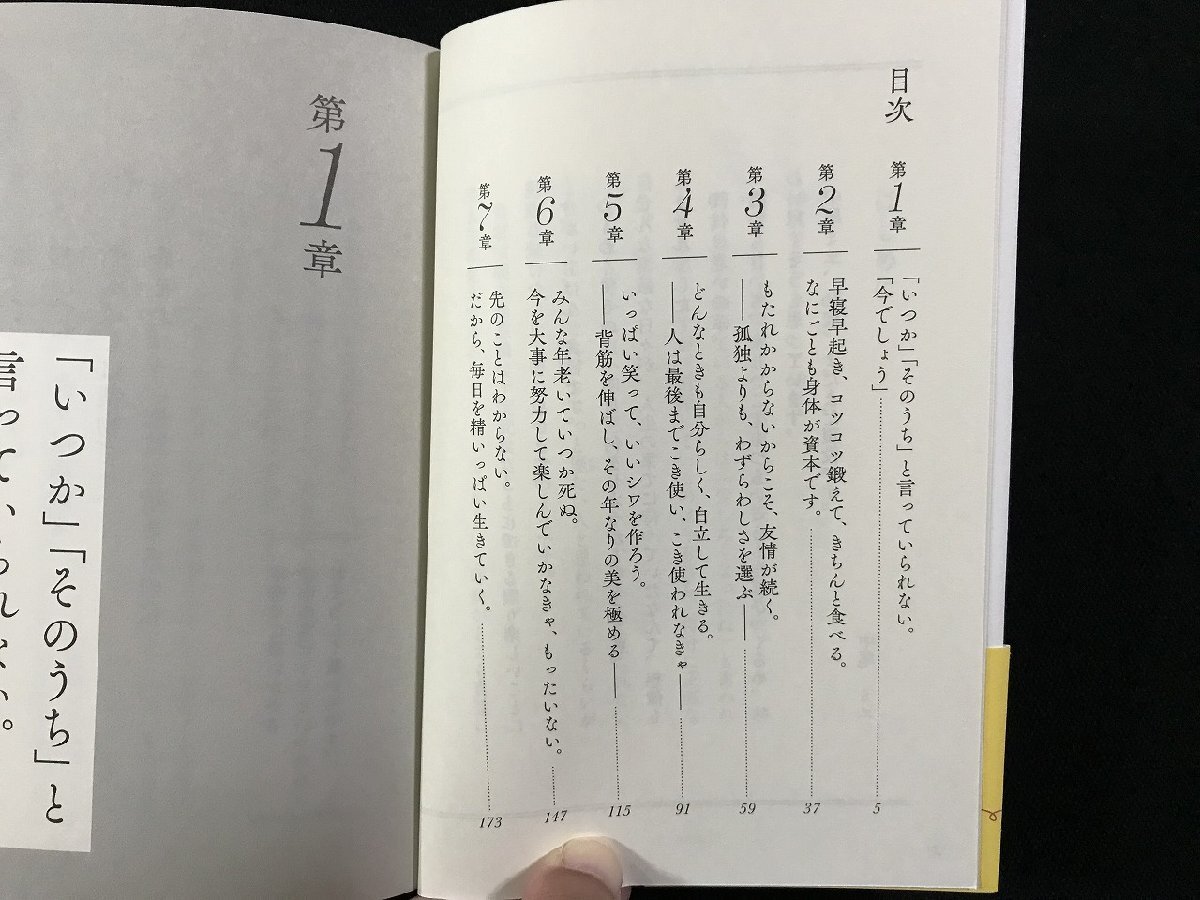 目次
第1章
「いつか」「そのうち」と言っていられない。
「今でしょう」
5
第2章
早寝早起き、コツコツ鍛えて、きちんと食べる。
なにごとも身体が資本です。
37
第3章
もたれかからないからこそ、友情が続く。
――孤独よりも、わずらわしさを選ぶ――
59
第4章
どんなときも自分らしく、自立して生きる。
――人は最後までこき使い、こき使われなきゃ――
91
第5章
いっぱい笑って、いいシワを作ろう。
――背筋を伸ばし、その年なりの美を極める――
115
第6章
みんな年老いていつか死ぬ。
今を大事に努力して楽しんでいかなきゃ、もったいない。
147
第7章
先のことはわからない。
だから、毎日を精いっぱい生きていく。
173
第1章
「いつか」「そのうち」と
言って、られない。